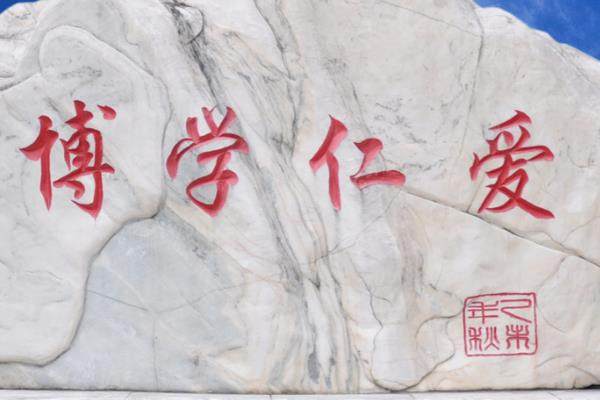 博学仁爱
乙未
年秋